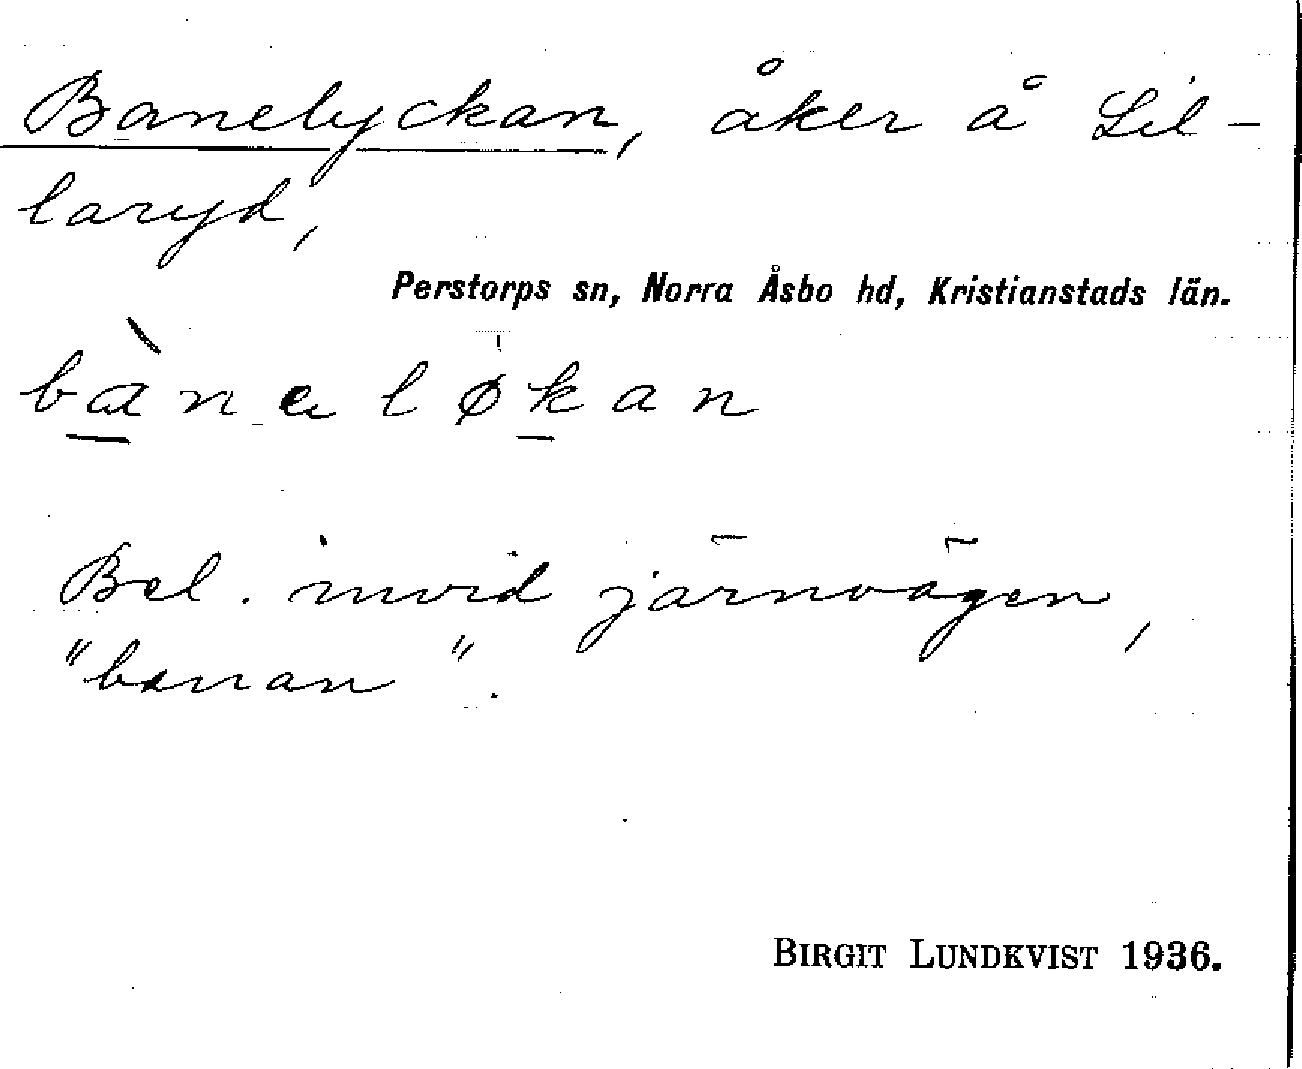 Banelyckan, åker å Lil-
laryd,
Perstorps sn, Norra Åsbo hd, Kristianstads län.
bàneløkan
Bel. invid järnvägen,
"banan".
BIRGIT LUNDKVIST 1936.